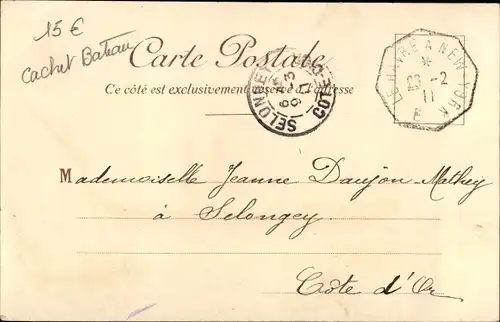 15 €
Cachet Bateau
Carte Postale
Ce côté est exclusivement réservé à l'adresse
SELONGEY
CÔTE-D'OR
LE HAVRE A NEW-YORK
*
23 -2
11
E
Mademoiselle Jeanne Daujon-Mathey
à Selongey
Côte d'Or